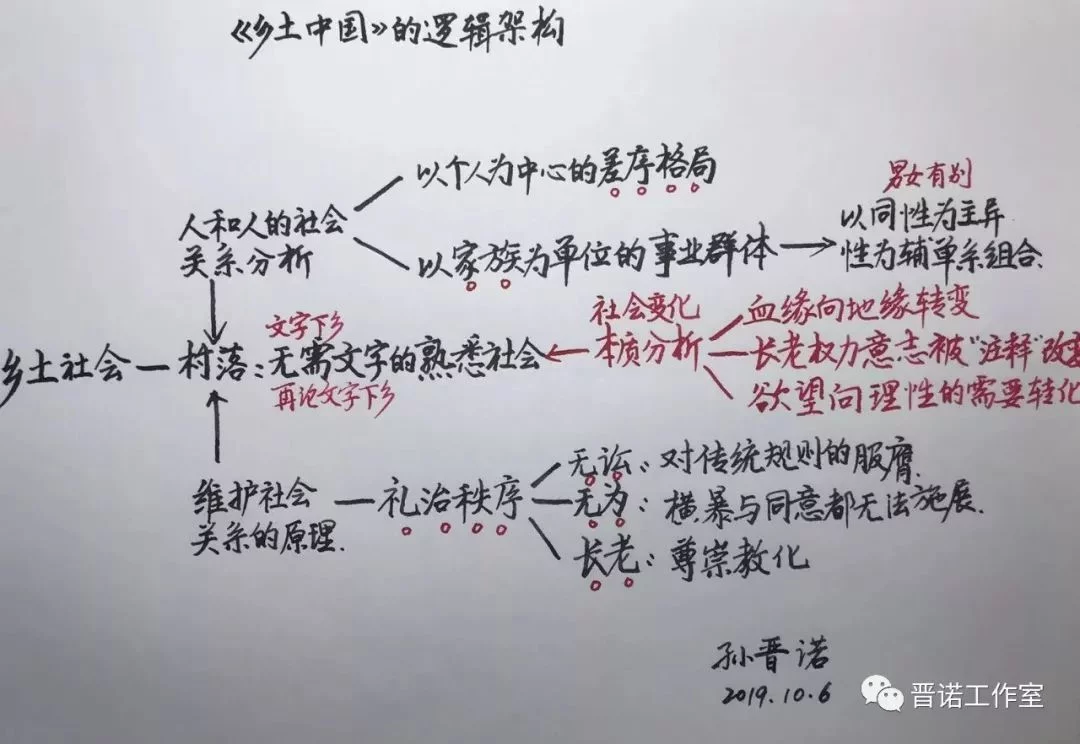 《乡土中国》的逻辑架构
以个人为中心的差序格局
人和人的社会
关系分析
以家族为单位的事业群体
男女有别
以同性为主异
性为辅"单系组合.
乡土社会
村落:无需文字的熟悉社会
文字下乡
再论文字下乡
社会变化
本质分析
血缘向地缘转变
长老权力意志被"注释"改
欲望向理性的需要转化
维护社会
关系的原理.
礼治秩序
无讼:对传统规则的服膺.
无为:横暴与同意都无法施展.
长老:尊崇教化
孙晋诺
2019.10.6
晋诺工作室